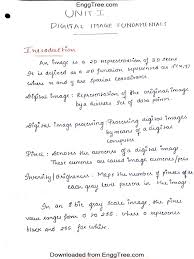 EnggTree.com
UNIT I
DIGITAL IMAGE FUNDAMENTALS
Introduction
An image is a 2D representation of 3D scene
It is defined as a 2D function represented as
where x and y are spatial coordinates
Digital image: Representation of the original image
by a discrete set of data points
Digital image processing: Processing digital images
by means of a digital
computer
Pixel: Denotes the elements of a digital image
These elements are called image elements/pels
Intensity/Grayness: Maps the number of pixels of
each gray level present in the image
In an 8 bit gray scale image, the pixel
value range from 0 to 255. where 0 represents
black and 255 for white.
Downloaded from EnggTree.com